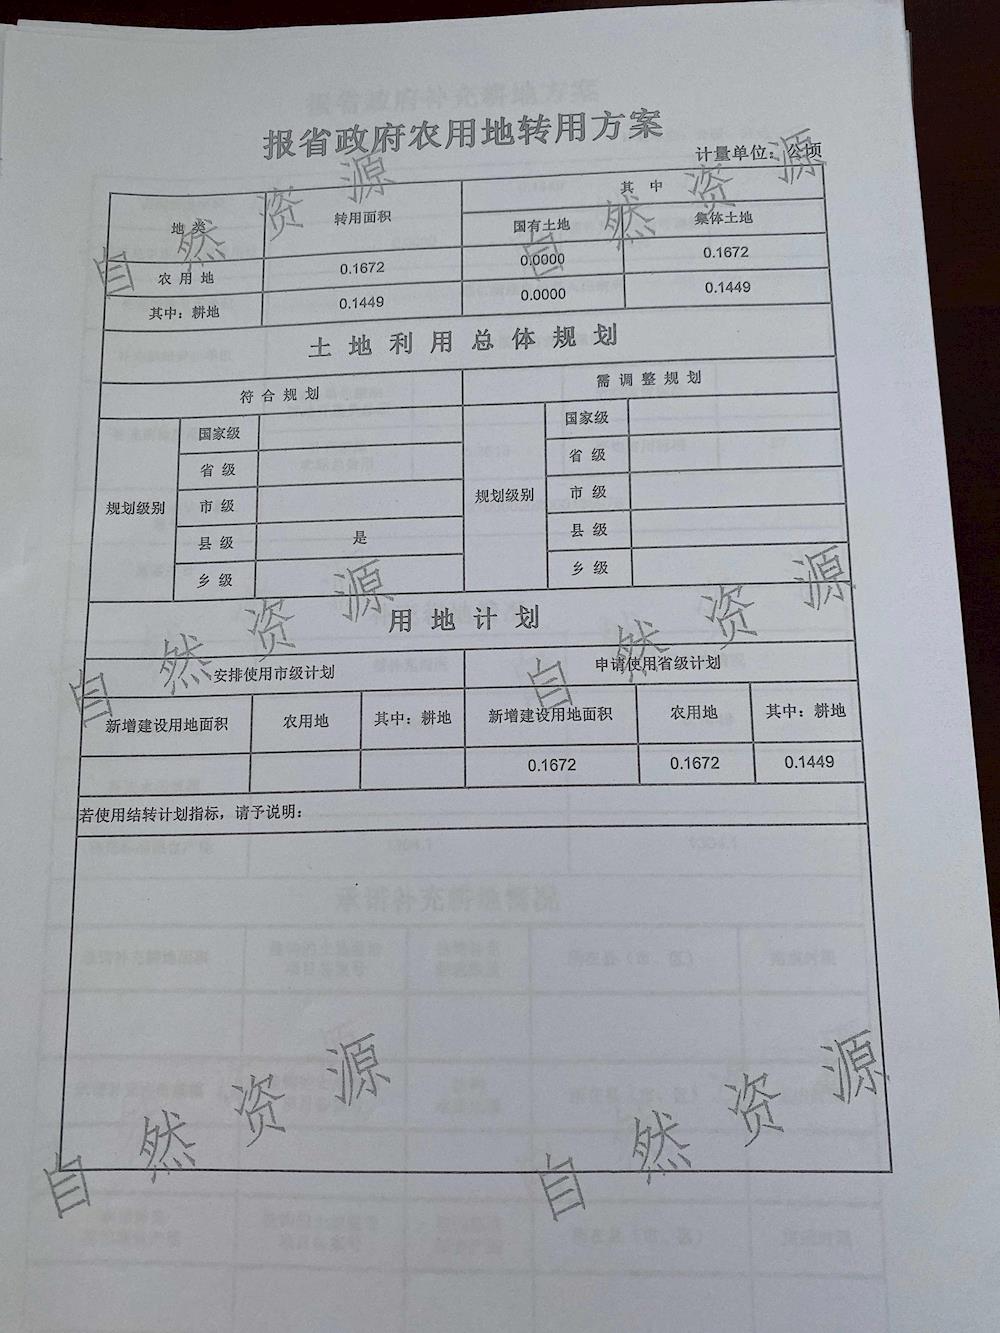 报省政府农用地转用方案
计量单位：公顷
地 类 转用面积 其 中
国有土地 集体土地
农 用 地 0.1672 0.0000 0.1672
其中：耕地 0.1449 0.0000 0.1449
土 地 利 用 总 体 规 划
符 合 规 划 需 调 整 规 划
规划级别 国家级 规划级别 国家级
省 级 省 级
市 级 市 级
县 级 是 县 级
乡 级 乡 级
用 地 计 划
安排使用市级计划 申请使用省级计划
新增建设用地面积 农用地 其中：耕地 新增建设用地面积 农用地 其中：耕地
0.1672 0.1672 0.1449
若使用结转计划指标，请予说明：
自 然 资 源
自 然 资 源
自 然 资 源
自 然 资 源
自 然 资 源
自 然 资 源